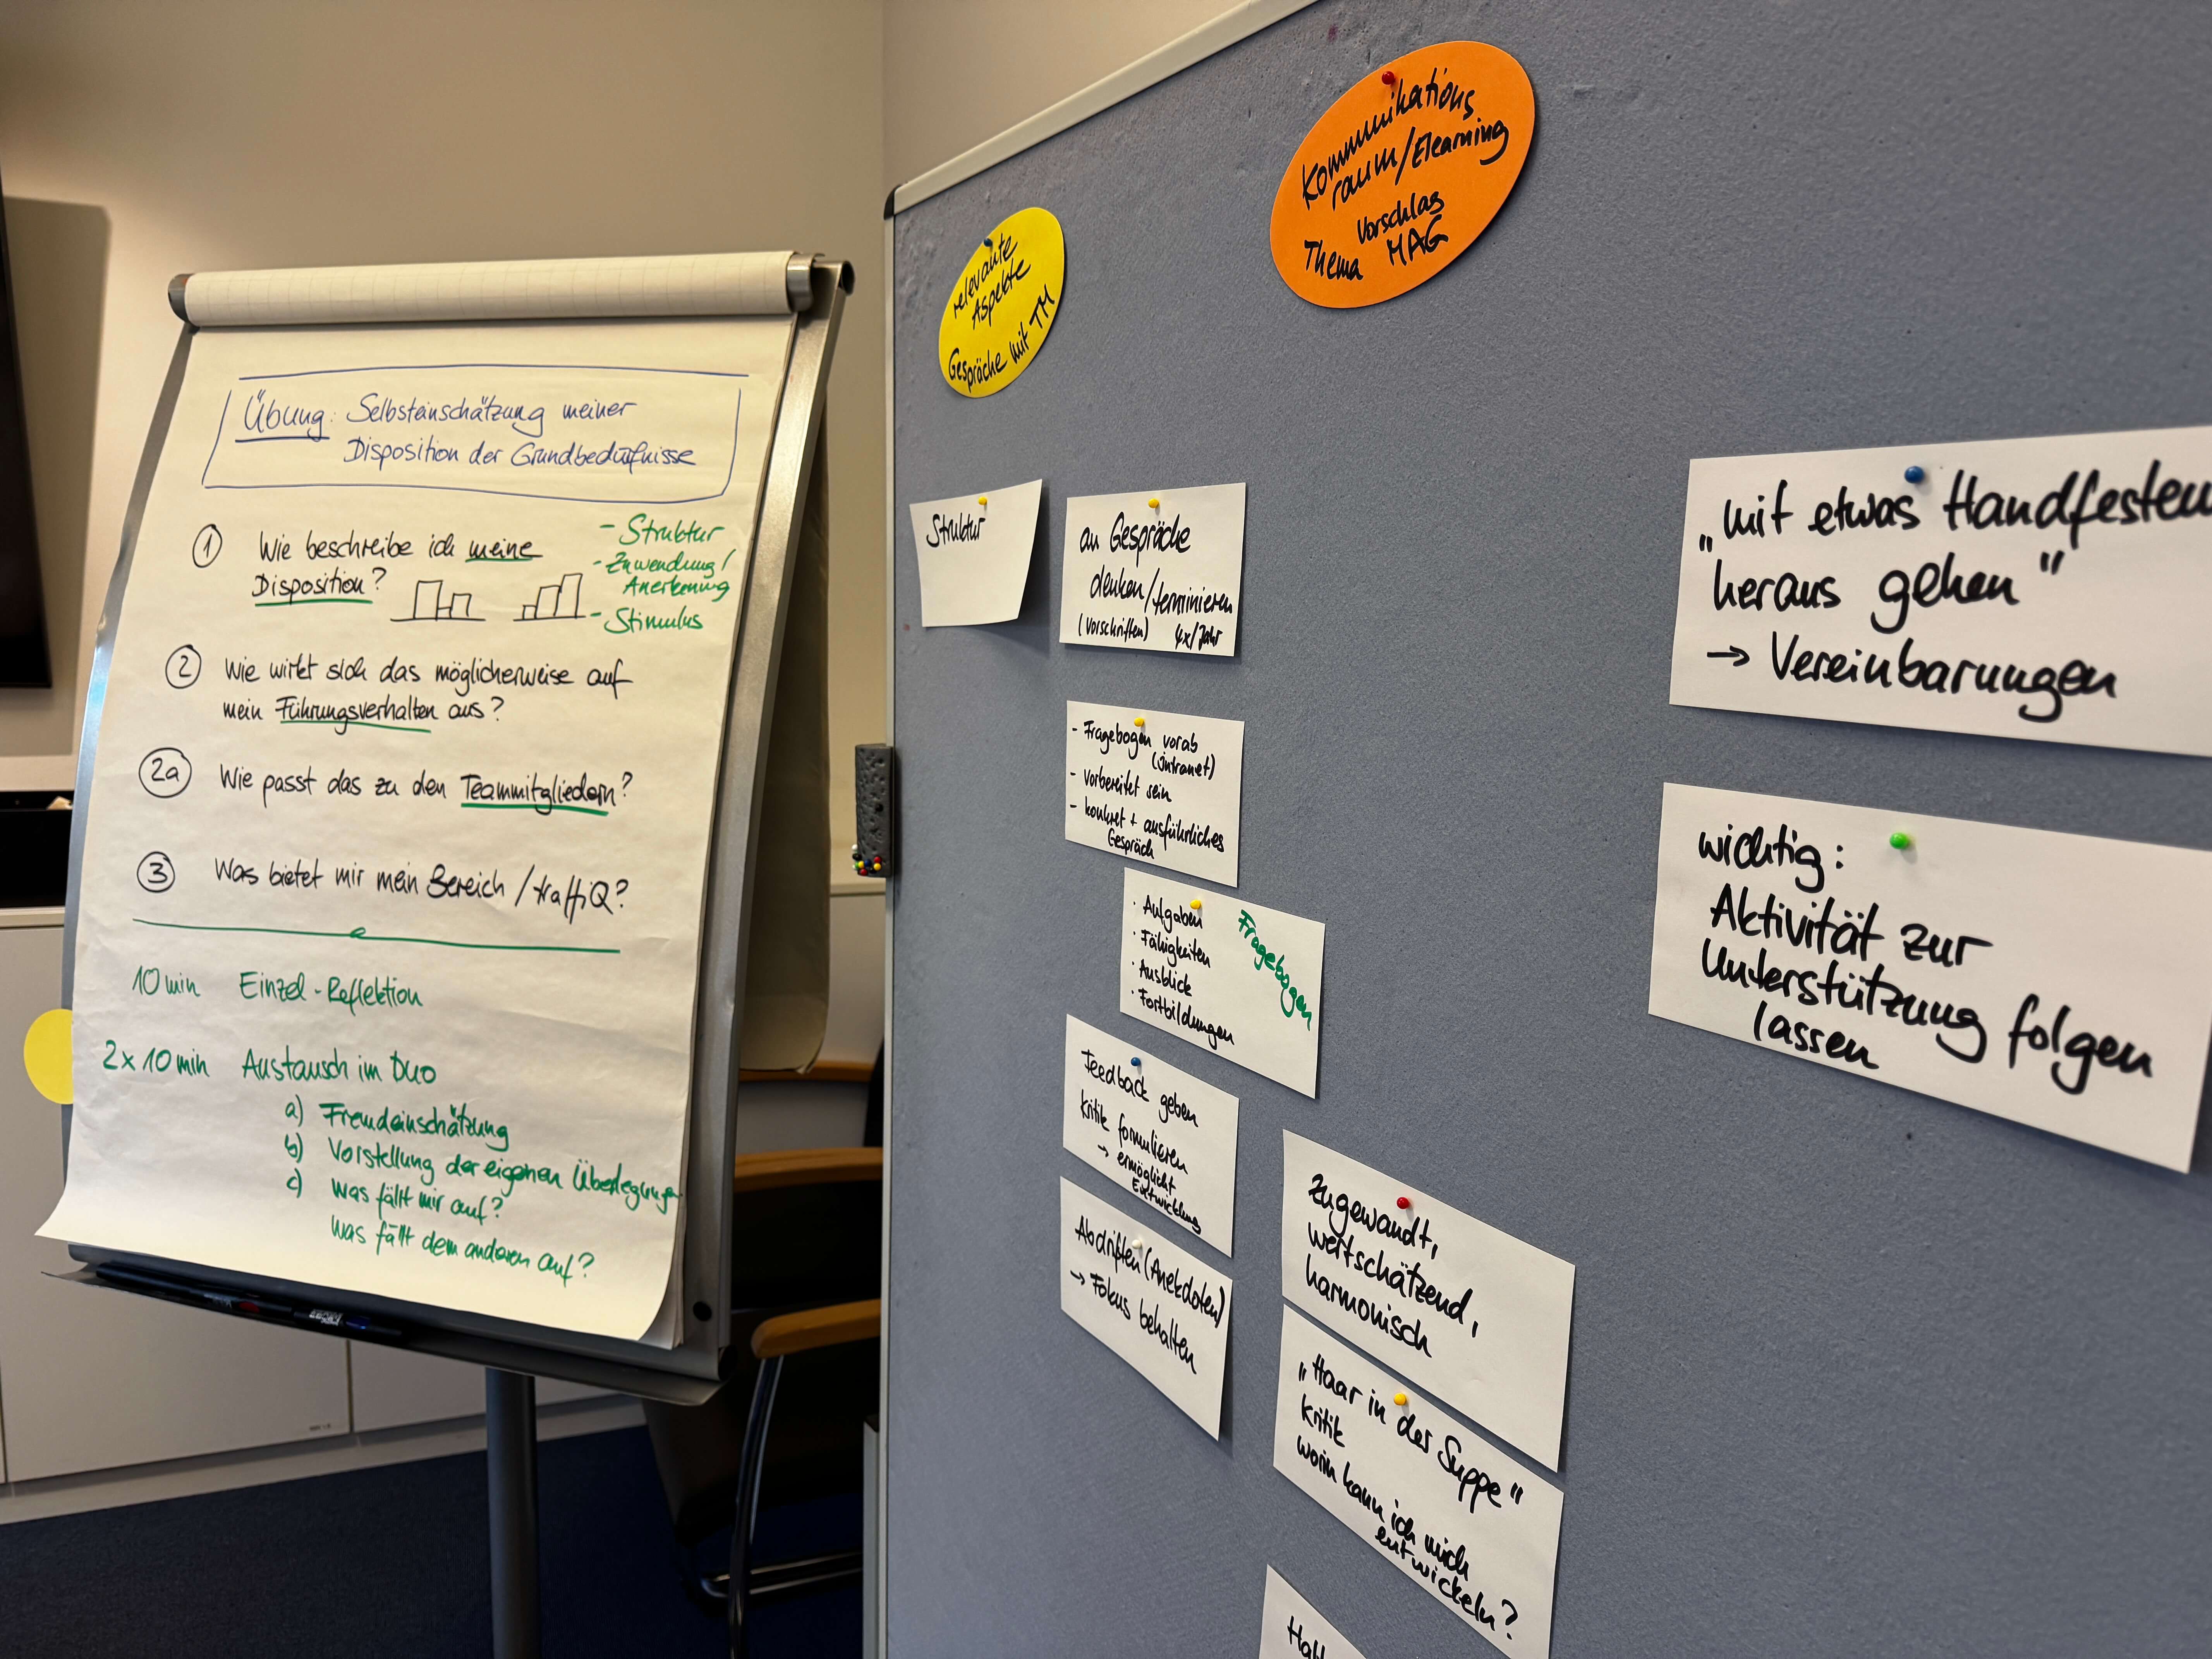 Übung: Selbsteinschätzung meiner
Disposition der Grundbedürfnisse
1 Wie beschreibe ich meine
Disposition?
- Struktur
- Zuwendung/
Anerkennung
- Stimulus
2 Wie wirkt sich das möglicherweise auf
mein Führungsverhalten aus?
2a Wie passt das zu den Teammitgliedern?
3 Was bietet mir mein Bereich/traffiQ?
10 min Einzel-Reflektion
2 x 10 min Austausch im Duo
a) Fremdeinschätzung
b) Vorstellung der eigenen Überlegungen
c) Was fällt mir auf?
Was fällt dem anderen auf?
relevante
Aspekte
Gespräche mit TM
Kommunikations
raum/Elearning
Vorschlag
Thema MAG
Struktur
an Gespräche
denken/terminieren
(Vorschriften) 4x/Jahr
- Fragebogen vorab
(intranet)
- vorbereitet sein
- konkret + ausführliches
Gespräch
· Aufgaben
· Fähigkeiten
· Ausblick
· Fortbildungen
Fragebogen
Feedback geben
Kritik formulieren
→ ermöglicht
Entwicklung
Abdriften (Anekdoten)
→ Fokus behalten
zugewandt,
wertschätzend,
harmonisch
"Haar in der Suppe"
Kritik
worin kann ich mich
entwickeln?
"mit etwas Handfestem
heraus gehen"
→ Vereinbarungen
wichtig:
Aktivität zur
Unterstützung folgen
lassen